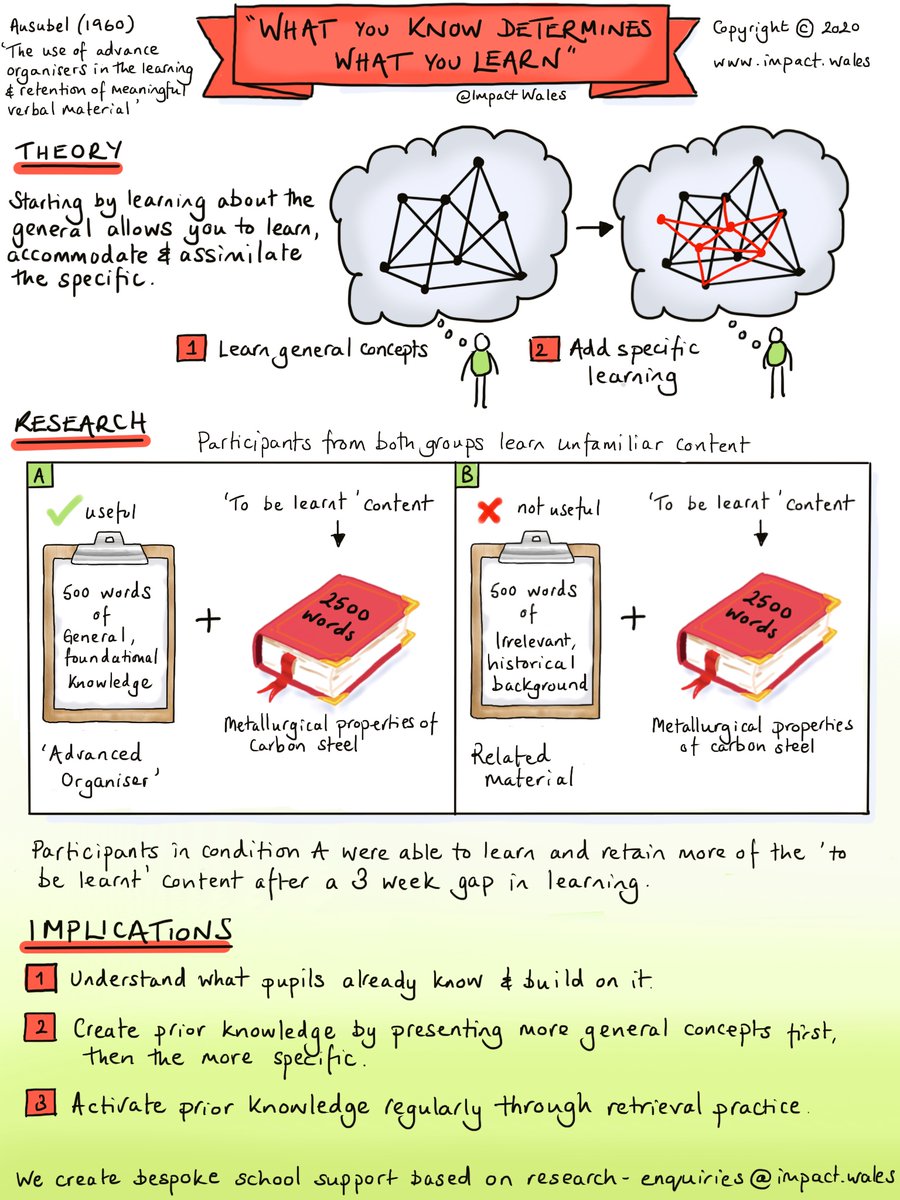 Ausubel (1960)
'The use of advance
organisers in the learning
& retention of meaningful
verbal material'
"WHAT YOU KNOW DETERMINES
WHAT YOU LEARN"
@Impact Wales
Copyright © 2020
www.impact.wales
THEORY
Starting by learning about the
general allows you to learn,
accommodate & assimilate
the specific.
1 Learn general concepts
2 Add specific
learning
RESEARCH
Participants from both groups learn unfamiliar content
A
useful
'To be learnt' content
500 words
of
General,
foundational
knowledge
+
2500
words
'Advanced
Organiser'
Metallurgical properties of
Carbon steel
B
not useful
'To be learnt' content
500 words
of
Irrelevant,
historical
background
+
2500
words
Related
Material
Metallurgical properties
of carbon steel
Participants in condition A were able to learn and retain more of the 'to
be learnt' content after a 3 week gap in learning.
IMPLICATIONS
1 Understand what pupils already know & build on it.
2 Create prior knowledge by presenting more general concepts first,
then the more specific.
3 Activate prior knowledge regularly through retrieval practice.
We create bespoke school support based on research - enquiries@impact.wales